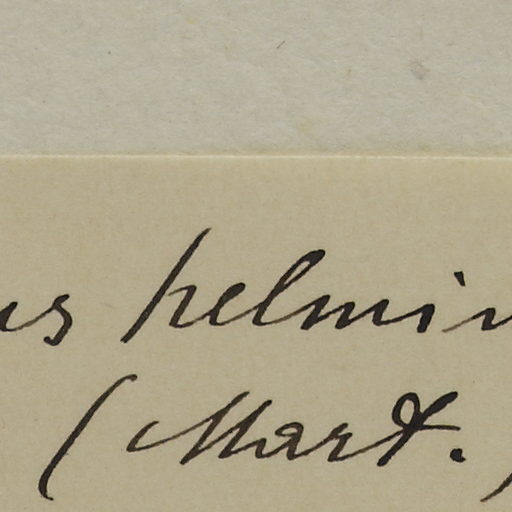 us helmin
(Mart.)